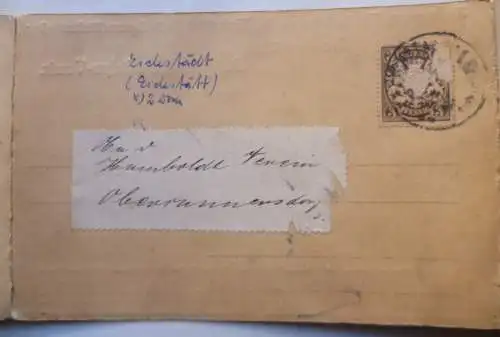 Eichstädt
(Eichstätt)
x) 2 Dom
Humboldt Verein
Oberrunnersdorf